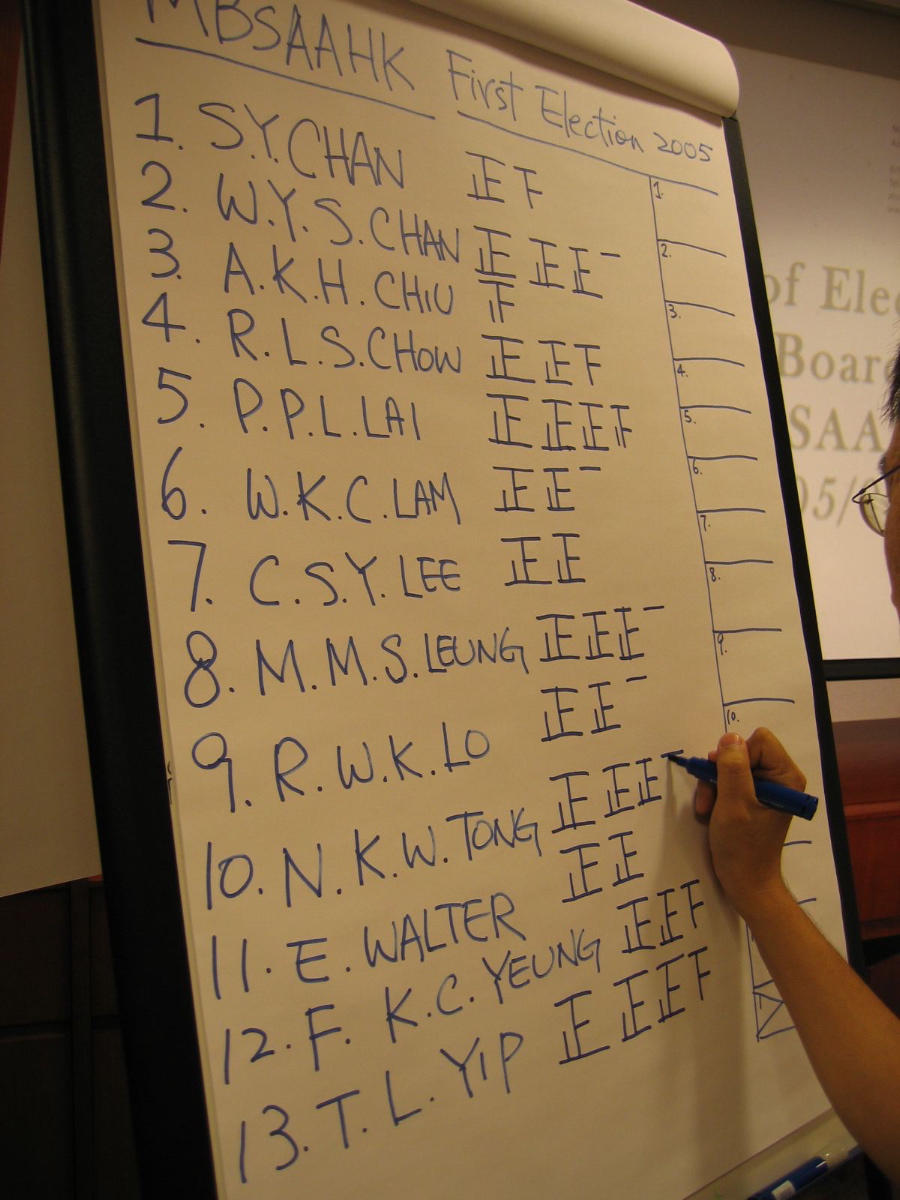 MBSAAHK First Election 2005
1. S.Y. CHAN 正 F
2. W.Y.S. CHAN 正 正 正 一
3. A.K.H. CHIU
4. R.L.S. CHOW 正 正 F
5. P.P.L. LAI 正 正 正
6. W.K.C. LAM 正 正 一
7. C.S.Y. LEE 正 正
8. M.M.S. LEUNG 正 正 正 一
9. R.W.K. LO 正 正 一
10. N.K.W. TONG 正 正 正
11. E. WALTER 正 正
12. F. K.C. YEUNG 正 正 F
13. T.L. YIP 正 正 正 F
1.
2.
3.
4.
5.
6.
7.
8.
9.
10.
of Elec
Board
SAA
05/